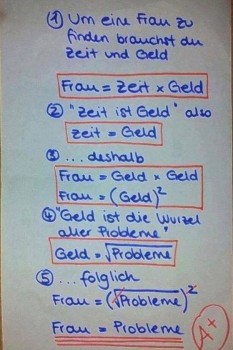 ① Um eine Frau zu
finden brauchst du
Zeit und Geld
Frau = Zeit x Geld
② "Zeit ist Geld" also
Zeit = Geld
③ ... deshalb
Frau = Geld x Geld
Frau = (Geld)²
④ "Geld ist die Wurzel
aller Probleme"
Geld = √Probleme
⑤ ... folglich
Frau = (√Probleme)²
Frau = Probleme
A+